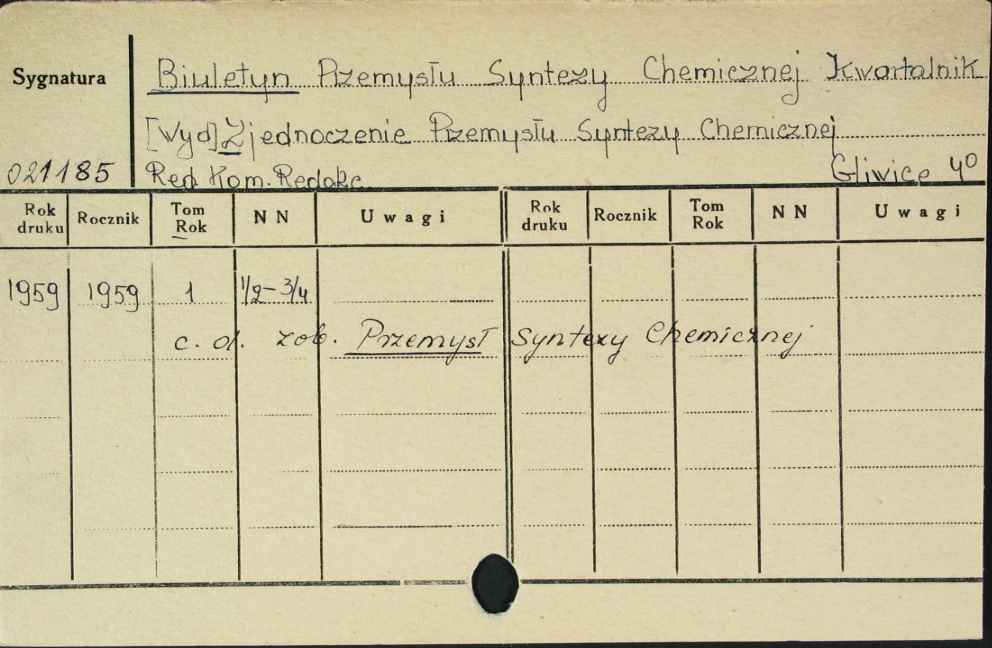 Sygnatura
Biuletyn Przemysłu Syntezy Chemicznej Kwartalnik
[Wyd] Zjednoczenie Przemysłu Syntezy Chemicznej
021185 Red Kom. Redakc. Gliwice 4°
Rok druku Rocznik Tom Rok NN Uwagi Rok druku Rocznik Tom Rok NN Uwagi
1959 1959 1 1/2-3/4
c. d. zob. Przemysł Syntezy Chemicznej